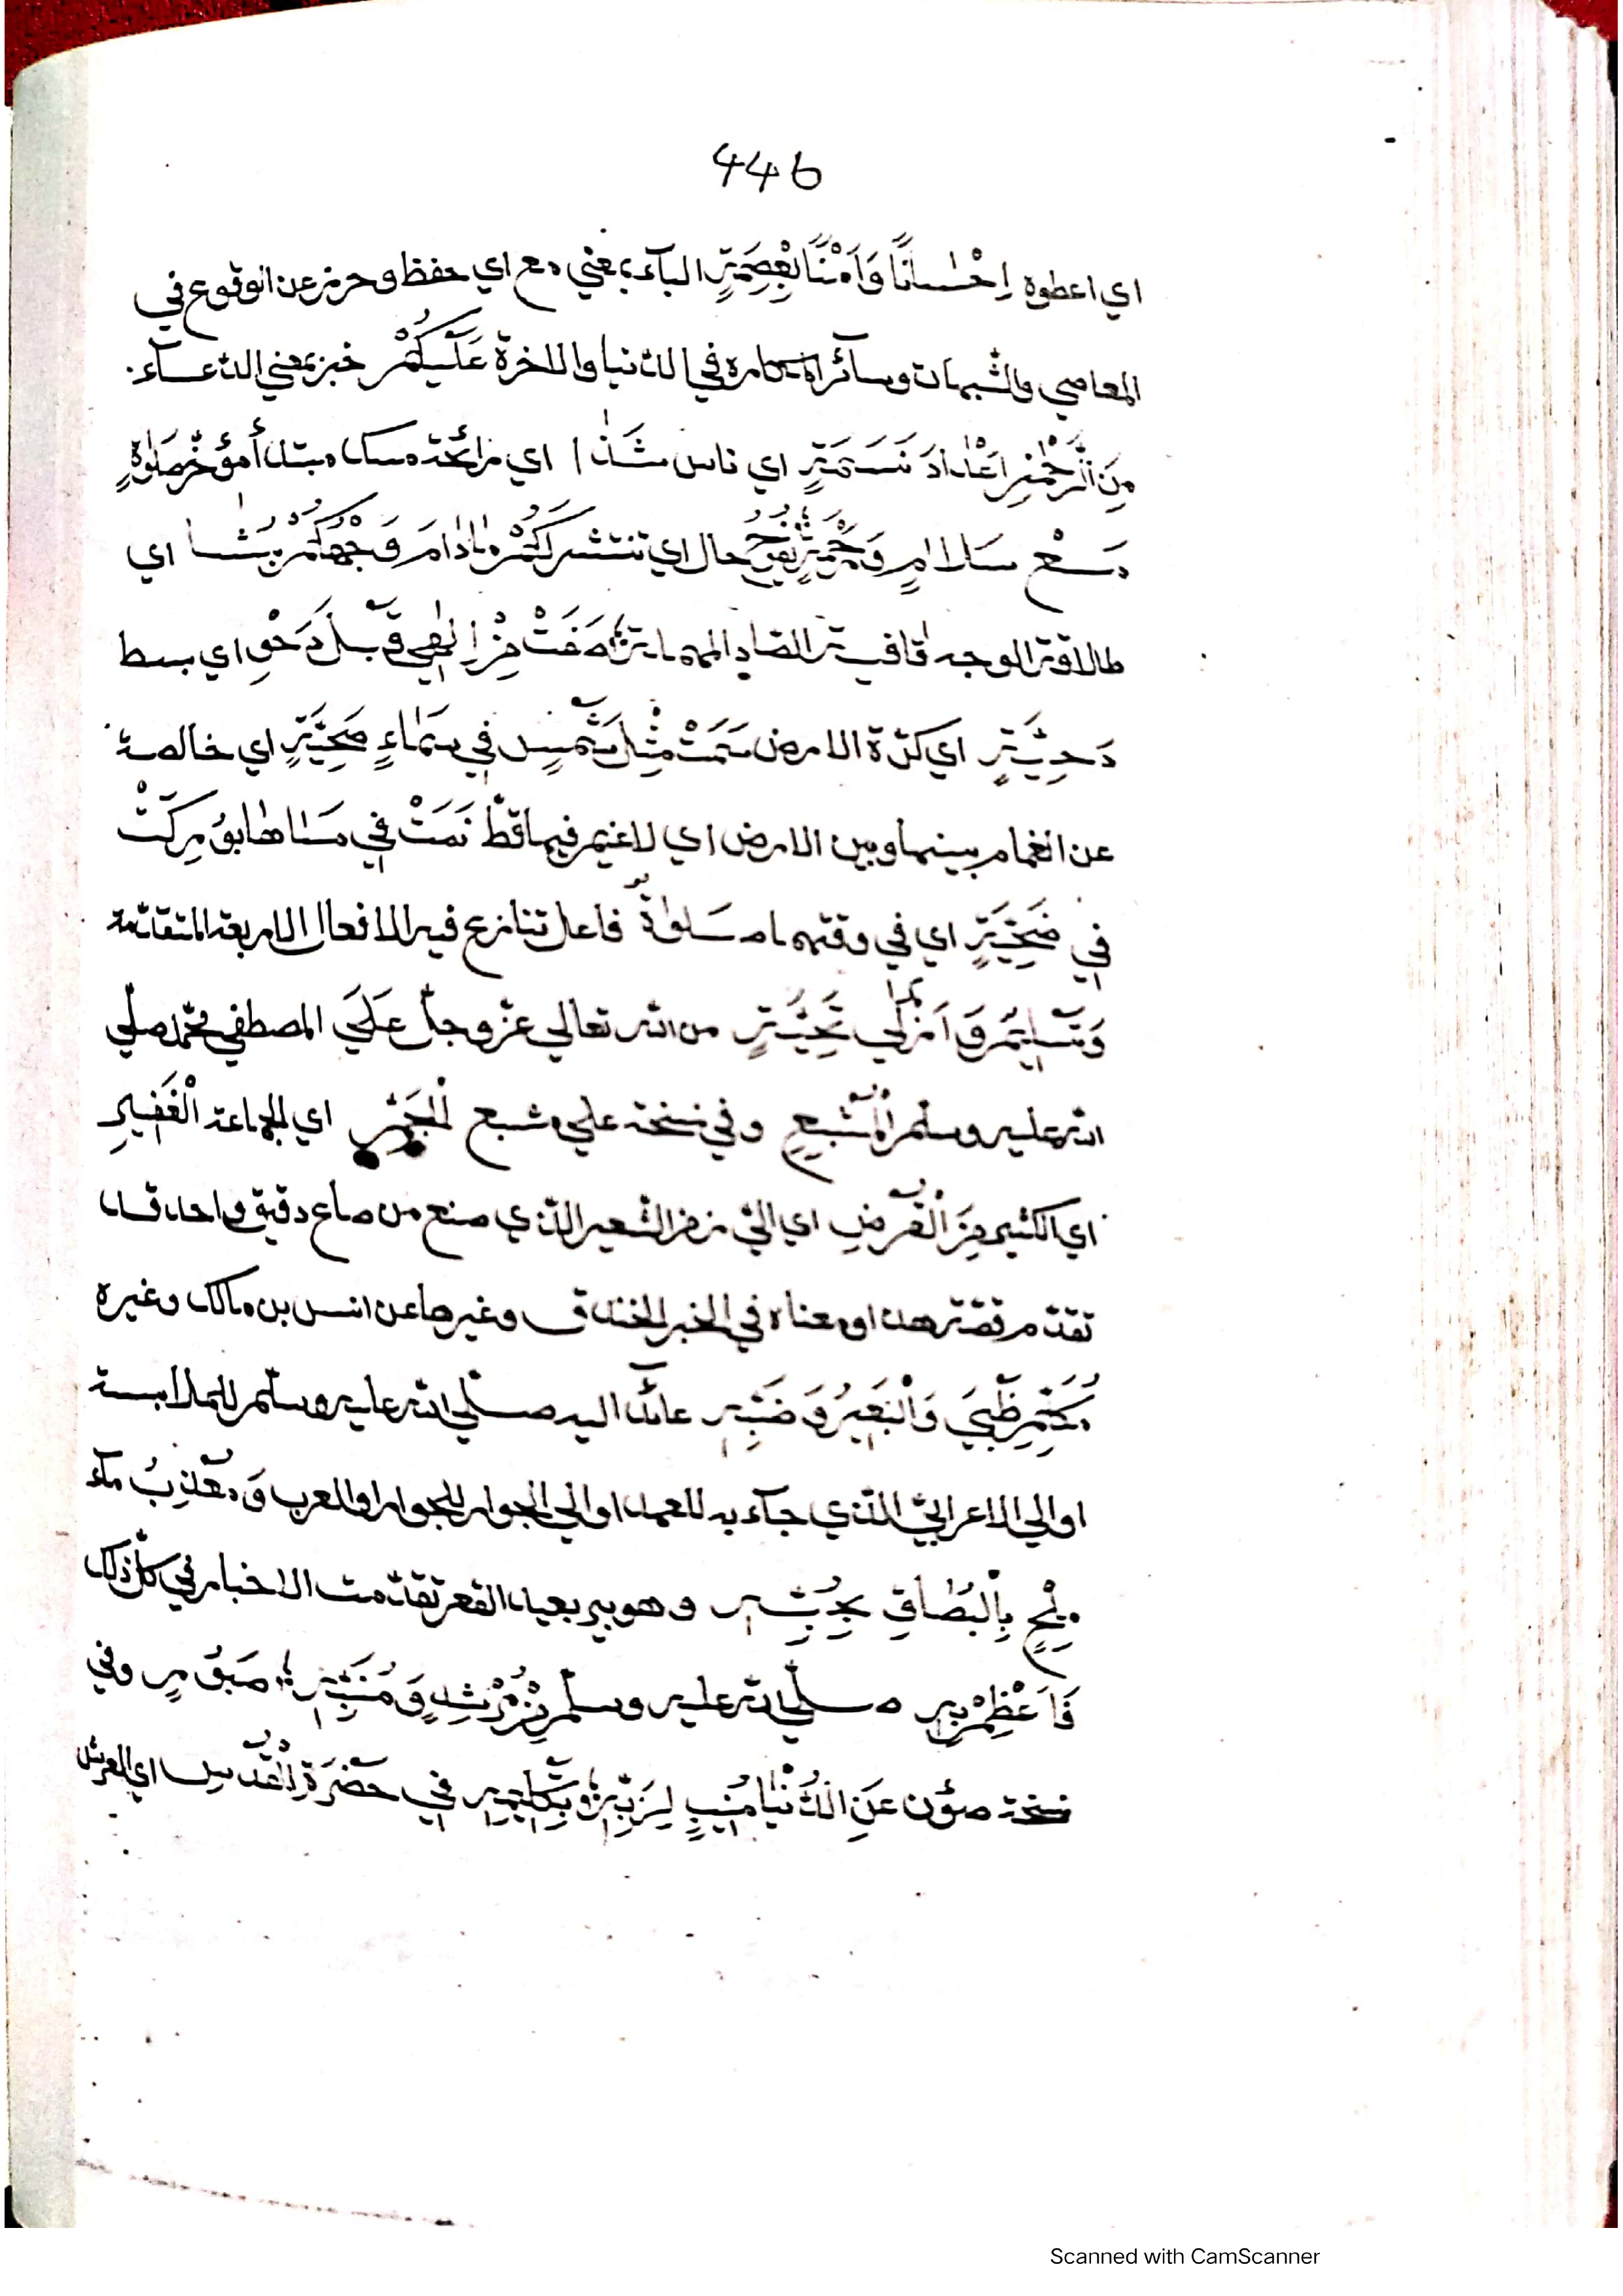 446
اي اعطوه اِحْسَانًا وَاَمْنًا بِعِصْمَةٍ الباء بمعني مع اي حفظ وحرز عن الوقوع في
المعاصي والشبهات وسآئر المكاره في الدّنيا والاخرة عَلَيْكُمْ خبر بمعني الدّعآء
مِنَ الرَّحْمٰنِ اَعْدَادَ نَسَمَةٍ اي ناس شَذَا اي رائحة مسك مبتدأ مؤخّر صَلٰوةٍ
مَعْ سَلَامٍ وَرَحْمَةٍ تَفُوْحُ حال اي تنتشر لَكُمْ مَادَامَ وَجْهُكُمْ بَشَّا اي
طلاقة الوجه قافية الصّاد المهملة صَفَتْ مِنْ اِلٰهِي قَبْلَ دَحْوِ اي بسط
دَحِيَّةٍ اي كرّة الارض سَمَتْ مِثْلَ شَمْسٍ فِي سَمَاءٍ صَحِيَّةٍ اي خالصة
عن الغمام بينها وبين الارض اي لا غيم فيها قطّ نَمَتْ فِي مَسَا طَابَقْ زَكَتْ
فِي ضَحِيَّةٍ اي في وقتهما صَلٰوةٌ فاعل تنازع فيه الافعال الاربعة المتقدّمة
وَتَسْلِيْمٌ وَاَزْكٰي تَحِيَّةٍ من الله تعالي عزّ وجلّ عَلَي المصطفي محمّد صلّي
الله عليه وسلّم الْمُشْبِعِ وفي نسخة علي مشبع الْجَمِّ اي الجماعة الْغَفِيْرِ
اي الكثير مِنَ الْقُرْصِ اي الّتي من الشّعير الّذي صنع من صاع دقيق واحد قد
تقدّم قصّة هذا ومعناه في الخبر الخندق وغيرها عن انس بن مالك وغيره
مُكَلِّمِ ظَبْيٍ وَالْبَعِيْرِ وَضَبِّهِ عائد اليه صلّي الله عليه وسلّم للملابسة
او الي الاعرابيّ الّذي جآء به للعهد او الي الجوار للجوار والعرب وَمُعْذِبُ مآء
مِلْحٍ بِالْبُصَاقِ بِجُبِّهِ وهو بير بعيد القعر تقدّمت الاخبار في كلّ ذلك
فَاَعْظِمْ بِهِ صلّي الله عليه وسلّم مِنْ مُرْشِدٍ وَمُنَبِّهٍ صَبُوْرٍ وفي
نسخة صؤن عَنِ الدُّنْيَا مُنِيْبٍ لِرَبِّهِ وَتَكْلِيْمِهِ فِي حَضْرَةِ الْقُدْسِ اي العرش
Scanned with CamScanner